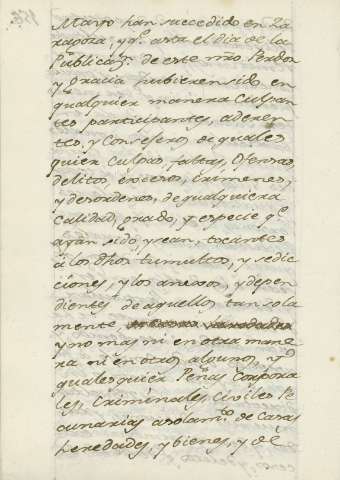 Marzo han succedido en Za
ragoza, y qe. asta el dia de la
Publicazn. de este nro. Perdon
y Gracia hubieren sido en
qualquier manera Culpan
tes participantes, aderen
tes, y Consejeros de quales
quier culpas, faltas, Ofensas
delitos, excesos, Crimenes,
y desordenes, de qualquiera
Calidad, grado, y especie qe.
ayan sido, y sean, tocantes
a los dhos tumultos, y sedic
ciones, y los anexos, y depen
dientes de aquellos tan sola
mente,
y no mas ni en otra mane
ra ni en otros algunos, y de
qualesquier Penas Corpora
les, Criminales, Civiles Pe
cunarias asolamto. de Casas
heredades, y bienes, y de